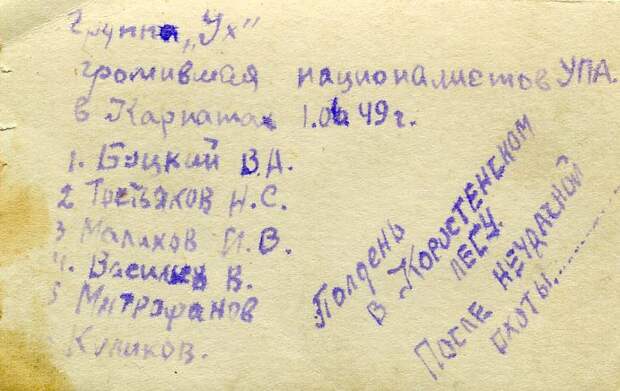 Группа „Ух"
громившая националистов УПА.
в Карпатах 1.06 49 г.
1. Буцкий В.А.
2 Третьяков Н.С.
3 Малахов И.В.
4. Васильев В.
5 Митрофанов
Куликов.
Полдень
в Коростенском
лесу.
После неудачной
охоты.........